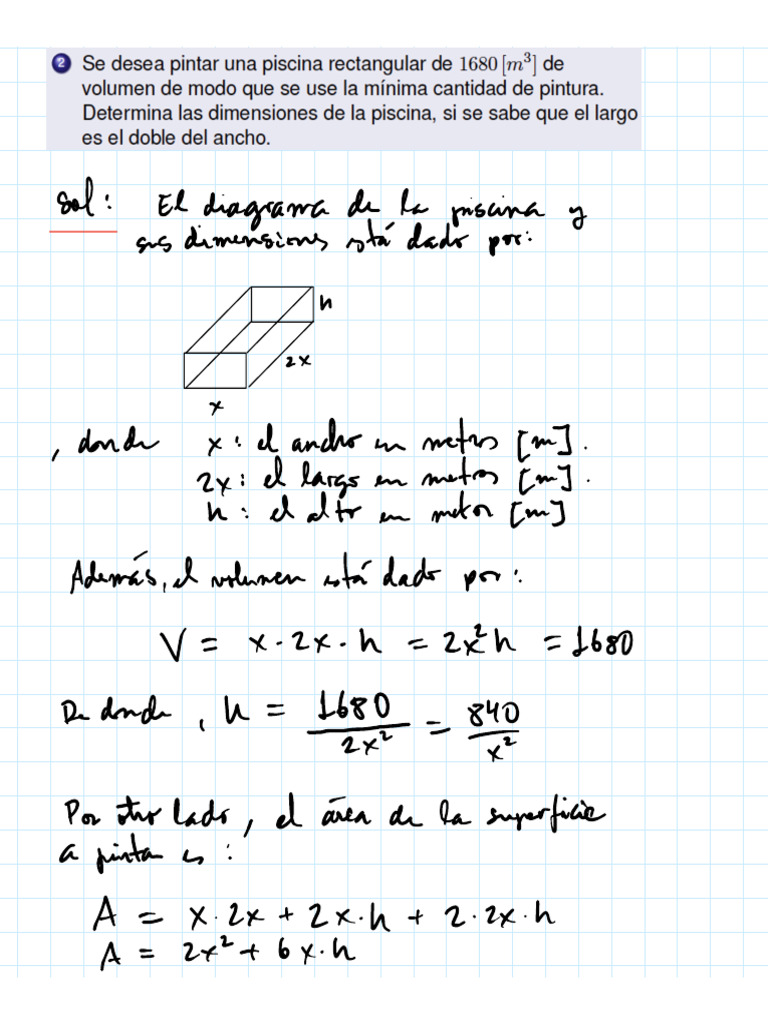 2 Se desea pintar una piscina rectangular de 1680 [m³] de
volumen de modo que se use la mínima cantidad de pintura.
Determina las dimensiones de la piscina, si se sabe que el largo
es el doble del ancho.
Sol: El diagrama de la piscina y
sus dimensiones está dado por:
h
2x
x
, donde x: el ancho en metros [m].
2x: el largo en metros [m].
h: el alto en metor [m]
Además, el volumen está dado por:
V = x·2x·h = 2x²h = 1680
De donde, h = 1680/2x² = 840/x²
Por otro lado, el área de la superficie
a pinta es:
A = x·2x + 2x·h + 2·2x·h
A = 2x² + 6x·h